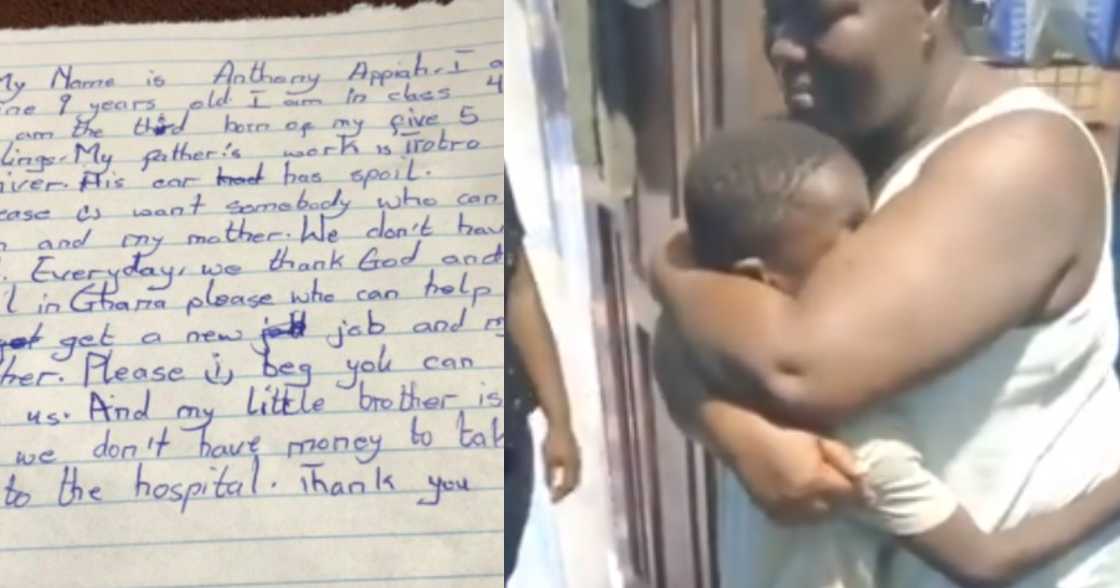 My Name is Anthony Appiah. I a
ine 9 years old. I am in class 4
am the third born of my five 5
lings. My father's work is Trotro
iver. His car has spoil.
ease is want somebody who can
and my mother. We don't hav
Everyday, we thank God and
l in Ghana please who can help
get a new job and m
ther. Please i, beg you can
us. And my little brother is
we don't have money to tak
to the hospital. Thank you